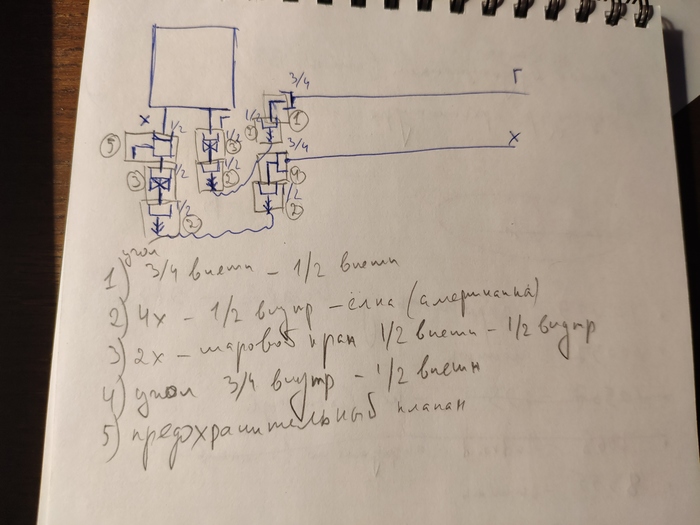 3/4
Г
X
Г
1/2
1/2
1
5
1/2
1/2
3
2
3/4
X
4
3
1/2
1/2
2
1/2
2
2
угол
1) 3/4 внешн - 1/2 внешн
2) 4x - 1/2 внутр - ёлка (американка)
3) 2x - шаровой кран 1/2 внешн - 1/2 внутр
4) угол 3/4 внутр - 1/2 внешн
5) предохранительный клапан